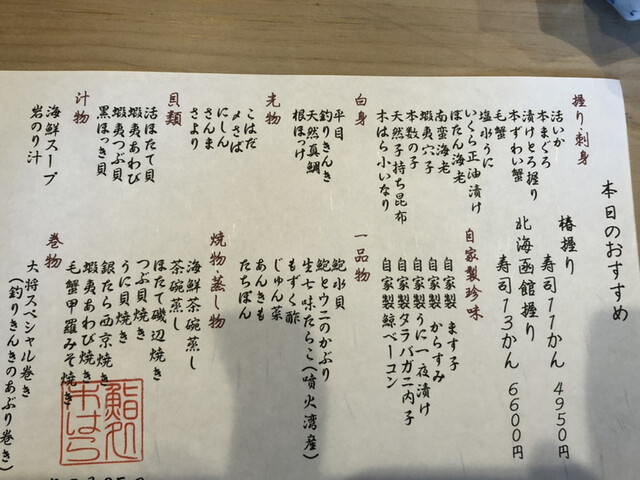 本日のおすすめ
椿握り　寿司11かん　4950円
北海函館握り　寿司13かん　6600円
握り・刺身
活いか
本まぐろ
漬けとろ握り
本ずわい蟹
毛蟹
塩水うに
いくら正油漬け
ぼたん海老
南蛮海老
蝦夷穴子
本数の子
天然子持ち昆布
木はら小いなり
白身
平目
釣りきんき
天然真鯛
根ほっけ
光物
こはだ
〆さば
にしん
さんま
さより
貝類
活ほたて貝
蝦夷あわび
蝦夷つぶ貝
黒ほっき貝
汁物
海鮮スープ
岩のり汁
自家製珍味
自家製　ます子
自家製　からすみ
自家製うに一夜漬け
自家製タラバガニ内子
自家製鯨ベーコン
一品物
鮑水貝
鮑とウニのかぶり
生七味たらこ(噴火湾産)
もずく酢
じゅん菜
あんきも
たちぽん
焼物・蒸し物
海鮮茶碗蒸し
茶碗蒸し
ほたて磯辺焼き
つぶ貝焼き
うに貝焼き
銀たら西京焼き
蝦夷あわび焼き
毛蟹甲羅みそ焼き
巻物
大将スペシャル巻き
(釣りきんきのあぶり巻き)
鮨処
木はら